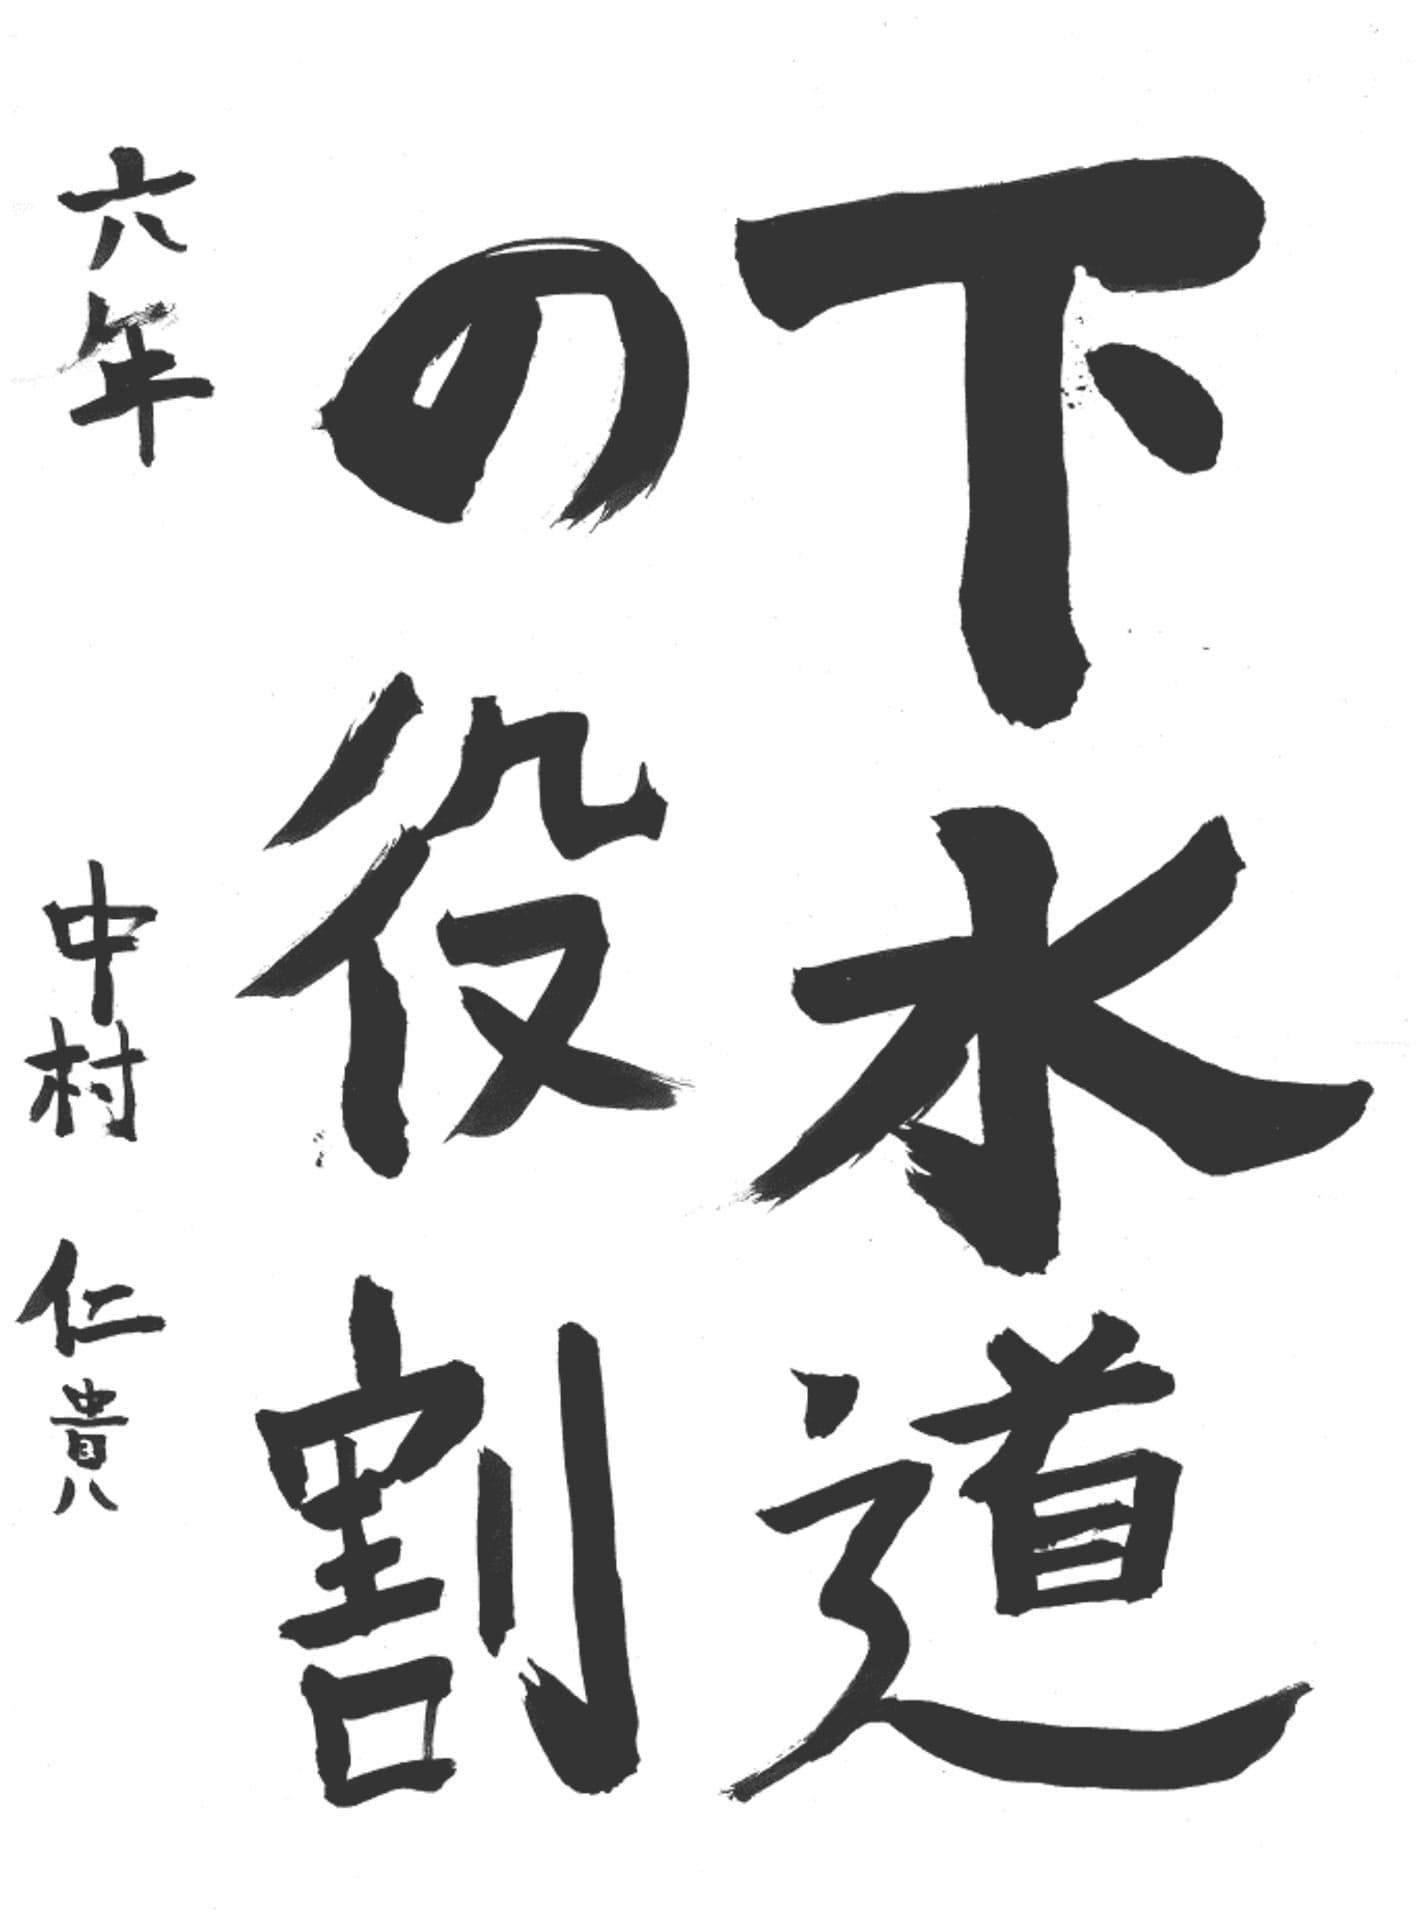 下水道
の役割
六年 中村 仁貴